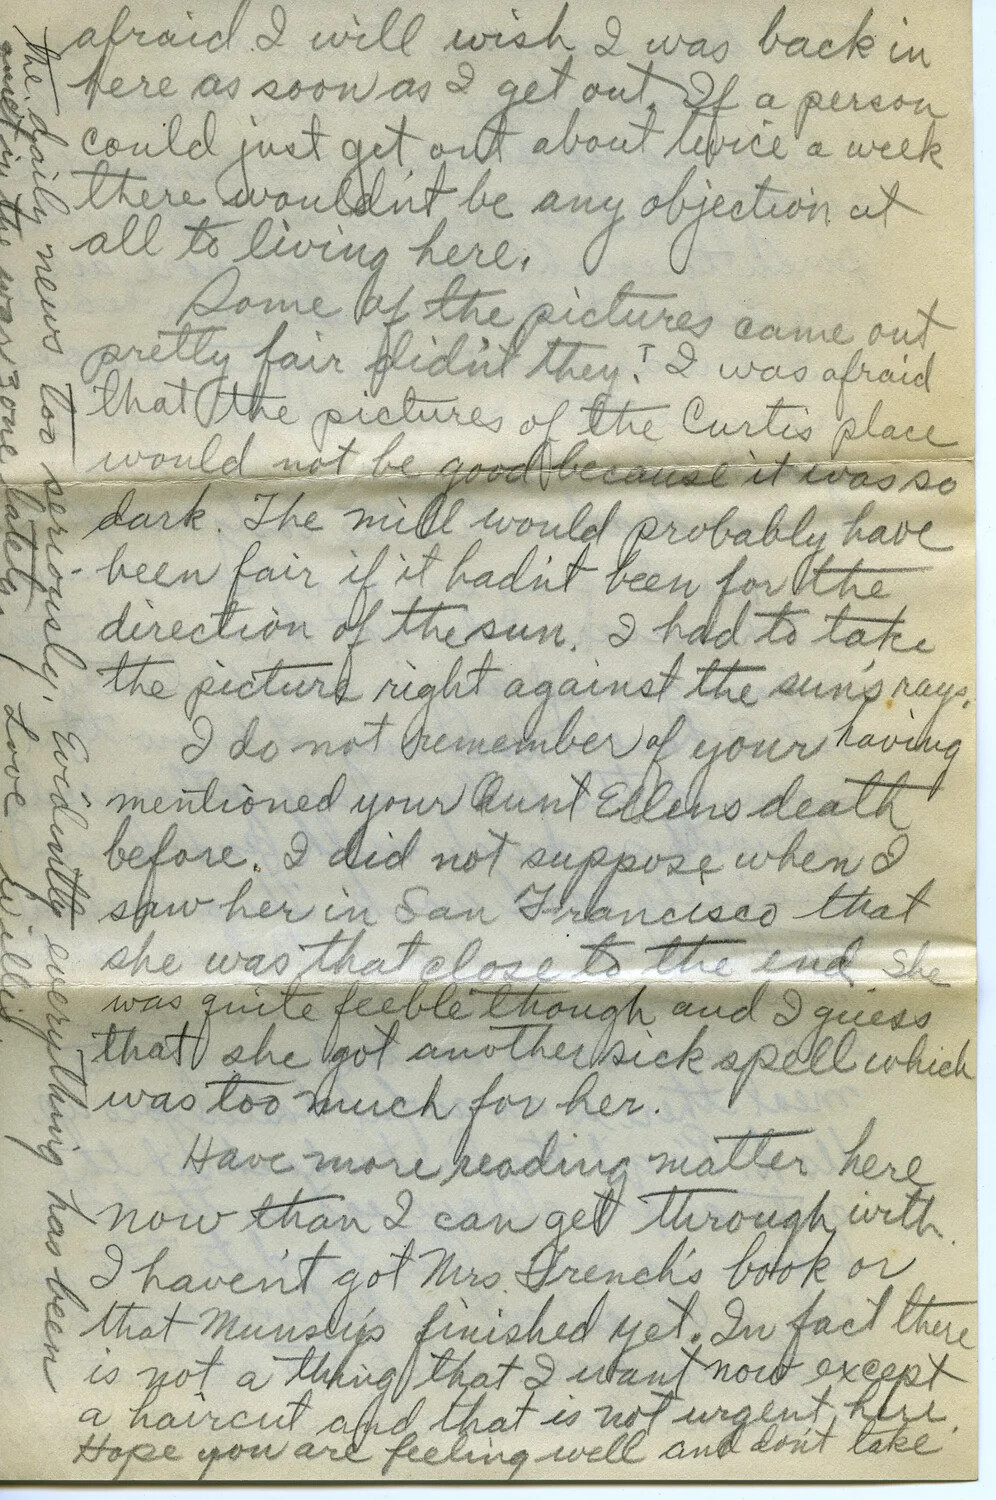 afraid I will wish I was back in
here as soon as I get out. If a person
could just get out about twice a week
there wouldn't be any objection at
all to living here.
Some of the pictures came out
pretty fair didn't they? I was afraid
that the pictures of the Curtis place
would not be good because it was so
dark. The mill would probably have
been fair if it hadn't been for the
direction of the sun. I had to take
the picture right against the sun's rays.
I do not remember of your having
mentioned your Aunt Ellens death
before. I did not suppose when I
saw her in San Francisco that
she was that close to the end. She
was quite feeble though and I guess
that she got another sick spell which
was too much for her.
Have more reading matter here
now than I can get through with.
I haven't got Mrs. French's book or
that Munsey's finished yet. In fact there
is not a thing that I want now except
a haircut and that is not urgent here.
Hope you are feeling well and don't take
the daily news too seriously. Evidently everything has been
quiet in the war zone lately. Love Willie